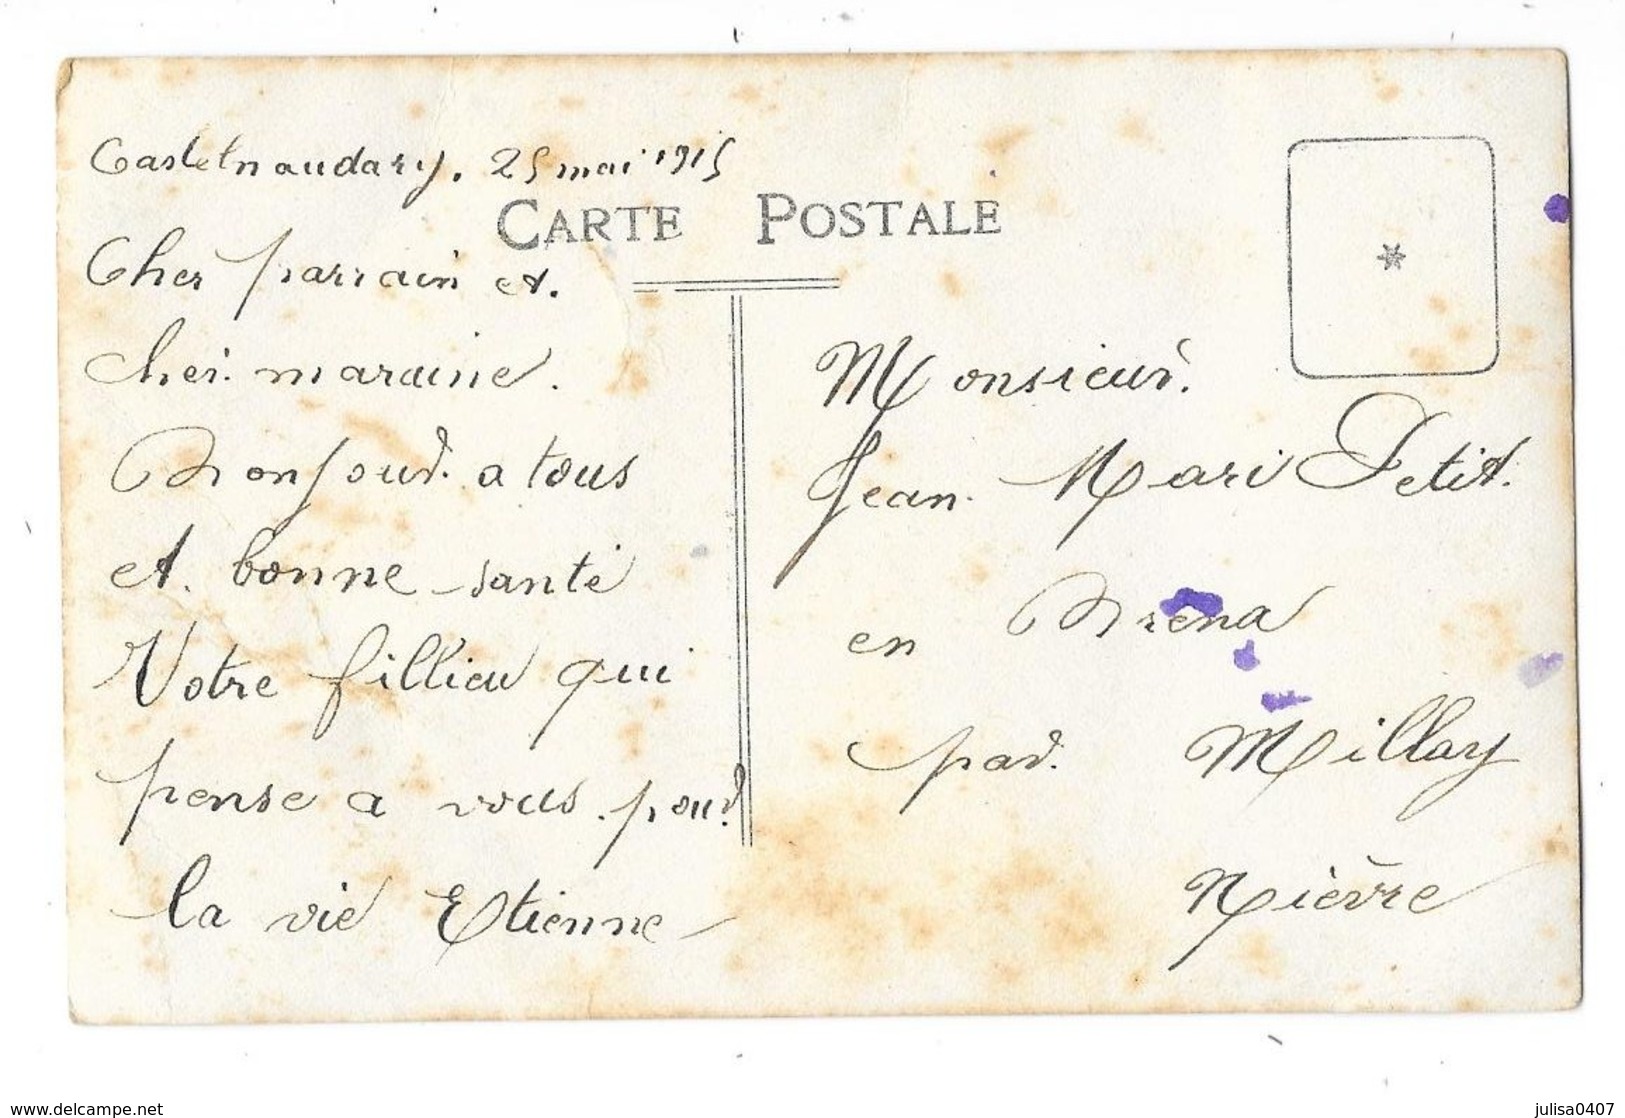 Castetnaudary. 25 mai 1915
CARTE POSTALE
Cher parrain et.
cher. maraine.
Bonjour. a tous
et. bonne santé
Votre fillieu qui
pense a vous. pour.
la vie Etienne
Monsieur.
Jean. Mari Petit.
en Brena
par. Millay
Nièvre
www.delcampe.net
julisa0407